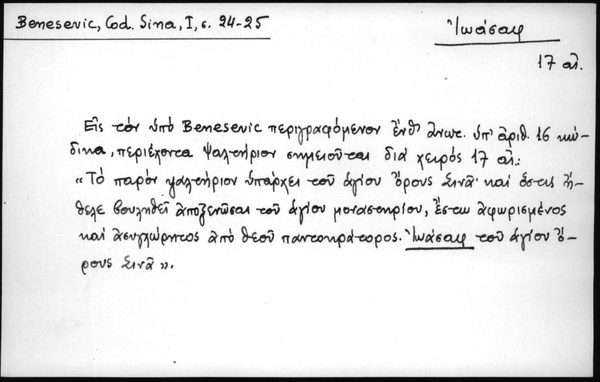 Benesevic, Cod. Sina, I, σ. 24-25
Ἰωάσαφ
17 αἰ.
Εἰς τόν ὑπό Benesevic περιγραφόμενον ἔνθ' ἀνωτ. ὑπ' ἀριθ. 16 κώ-
δικα, περιέχοντα ψαλτήριον σημειοῦται διά χειρός 17 αἰ.:
«Τό παρόν ψαλτήριον ὑπάρχει τοῦ ἁγίου ὄρους Σινᾶ· καί ὅστις ἤ-
θελε βουληθεῖ ἀποξενῶσαι τοῦ ἁγίου μοναστηρίου, ἔστω ἀφωρισμένος
καί ἀσυγχώρητος ἀπό θεοῦ παντοκράτορος. Ἰωάσαφ τοῦ ἁγίου ὄ-
ρους Σινᾶ».